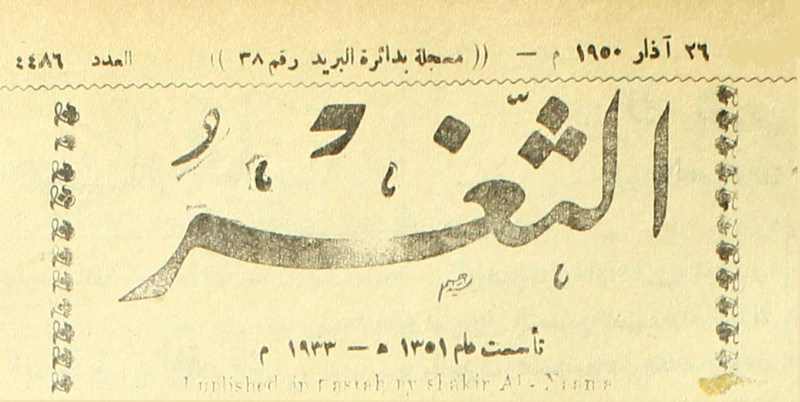 ٢٦ آذار ١٩٥٠ م — (( مسجلة بدائرة البريد رقم ٣٨ )) العدد ٤٤٨٦
الثَّغْرُ
رحيم
تأسست عام ١٣٥١ ه — ١٩٣٣ م
Published in Basrah by Shakir AL-Niama